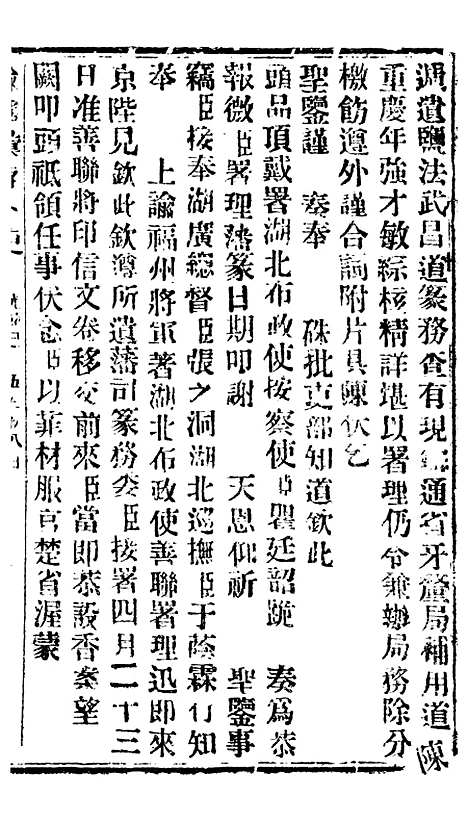 遞遺鹽法武昌道篆務查有現 通省牙釐局補用道陳
重慶年強才敏綜核精詳堪以署理仍令兼辦局務除分
檄飭遵外謹合詞附片具陳伏乞
聖鑒謹 奏奉 硃批吏部知道欽此
頭品頂戴署湖北布政使按察使臣瞿廷韶跪 奏爲恭
報微臣署理藩篆日期叩謝 天恩仰祈 聖鑒事
竊臣接奉湖廣總督臣張之洞湖北巡撫臣于蔭霖行知
奉 上諭福州將軍著湖北布政使善聯署理迅即來
京陛見欽此欽遵所遺藩司篆務委臣接署四月二十三
日准善聯將印信文卷移交前來臣當即恭設香案望
闕叩頭祗領任事伏念臣以菲材服官楚省渥蒙